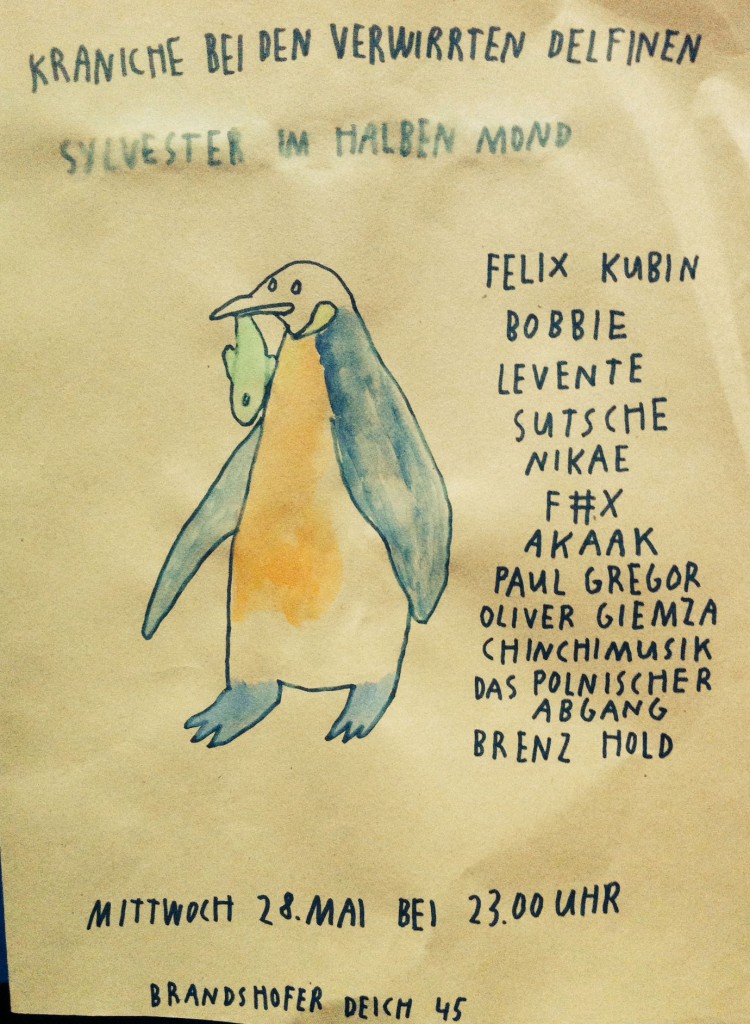 KRANICHE BEI DEN VERWIRRTEN DELFINEN
SYLVESTER IM HALBEN MOND
FELIX KUBIN
BOBBIE
LEVENTE
SUTSCHE
NIKAE
F#X
AKAAK
PAUL GREGOR
OLIVER GIEMZA
CHINCHIMUSIK
DAS POLNISCHER
ABGANG
BRENZ HOLD
MITTWOCH 28. MAI BEI 23.00 UHR
BRANDSHOFER DEICH 45